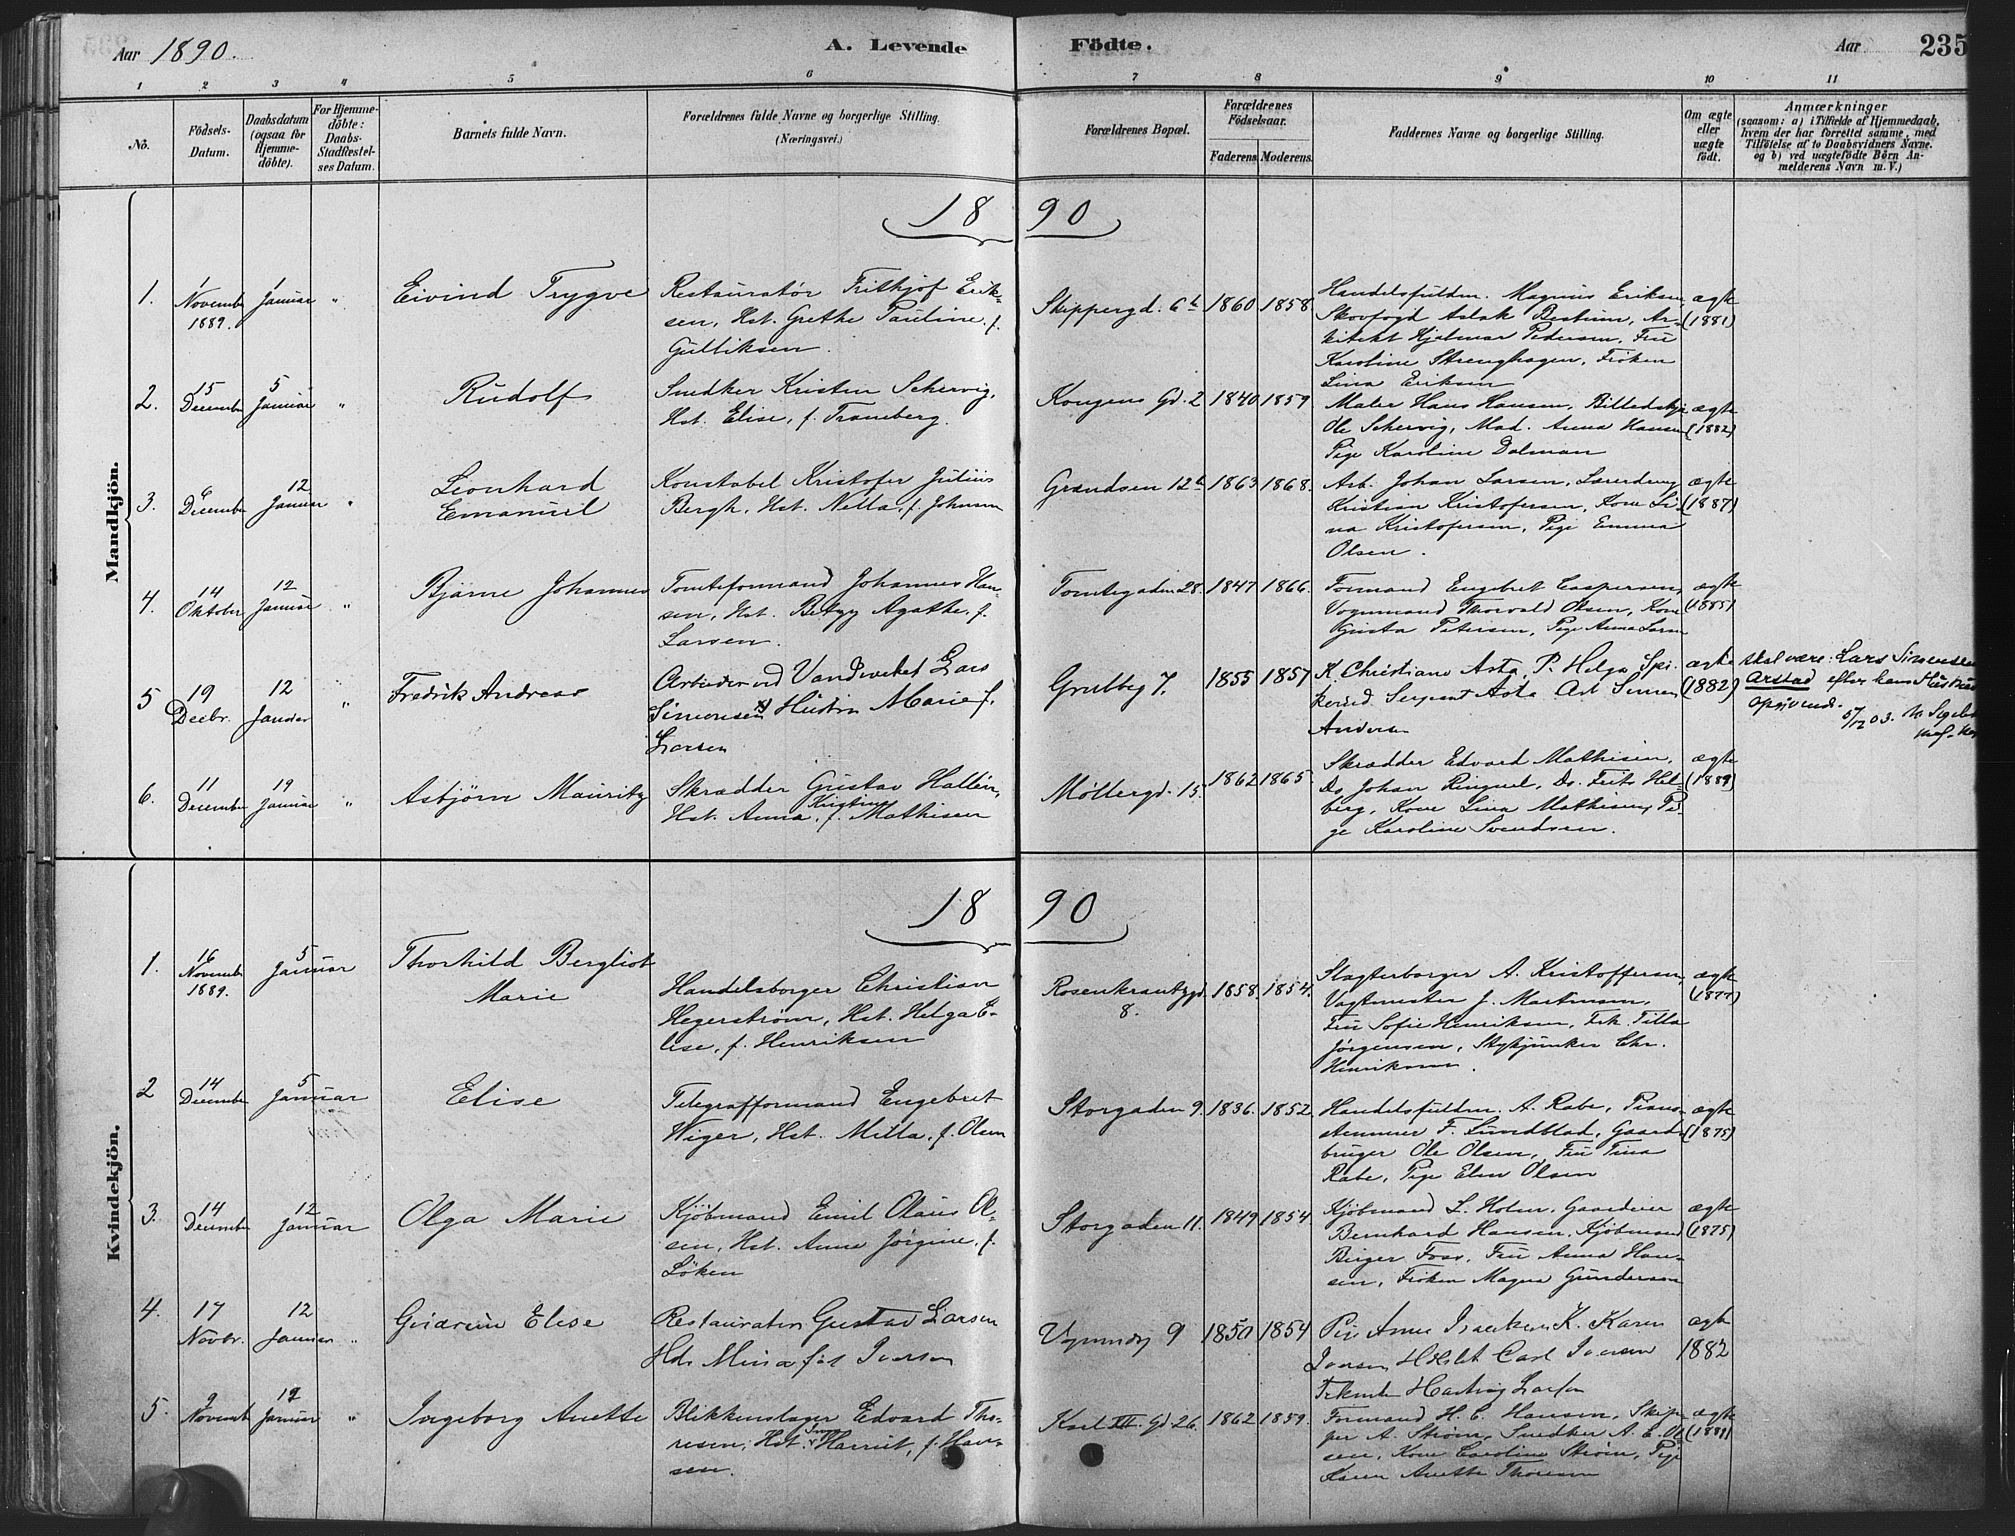 Aar 1890.
A. Levende Födte.
Aar
235
1 2 3 4 5 6 7 8 9 10 11
No.
Födsels-Datum.
Daabsdatum (ogsaa for Hjemme-döbte).
For Hjemme-döbte: Daabs-Stadfæstel-ses Datum.
Barnets fulde Navn.
Forældrenes fulde Navne og borgerlige Stilling.
(Næringsvei.)
Forældrenes Bopæl.
Forældrenes Födselsaar.
Faderens. Moderens.
Faddernes Navne og borgerlige Stilling.
Om ægte eller uægte födt.
Anmærkninger
(saasom: a) i Tilfælde af Hjemmedaab,
hvem der har forrettet samme, med
Tilföielse af to Daabsvidners Navne.
og b) ved uægtefödte Börn An-
melderens Navn m. V.)
Mandkjön.
1890
1. 1 November 1889. 1 Januar "
Eivind Trygve
Restauratör Frithjof Erik-
sen, Hst. Grethe Pauline, f.
Gulliksen.
Skippergd. 6b 1860 1858
Handelsfuldm. Magnus Eriksen,
Skovfogd Aslak Bestum, Ar-
kitekt Hjalmar Pedersen, Fru
Karoline Strenghagen, Fröken
Lina Eriksen
ægte (1881)
2. 15 December 5 Januar "
Rudolf
Snedker Kristen Schervig,
Hst. Elise, f. Tramberg.
Kongens Gd. 2 1840 1859
Maler Hans Hansen,
Ole Schervig, Mad. Anna Hansen
Pige Karoline Dalman
ægte (1882)
3. 6 December 12 Januar "
Leonhard
Emanuel
Konstabel Kristofer Julius
Bergh, Hst. Netta, f. Johnsen
Grændsen 12b 1863 1868.
Arb. Johan Larsen,
Kristian Kristofersen, Kone Li-
na Kristofersen, Pige Emma
Olsen.
ægte (1887)
4. 14 Oktober 12 Januar "
Bjarne Johannes
Tomteformand Johannes Han-
sen, Hst. Betzy Agathe, f.
Larsen.
Tomtegaden 28. 1847 1866.
Formand Engebret Caspersen,
Vognmand Thorvald Olsen, Kone
Petersen, Pige Anna Larsen
ægte (1885)
5 19 Decbr. 12 Januar "
Fredrik Andreas
Arbeider ved Vandverket Lars
Simonsen Hustru Marie f.
Larsen
Grubbeg 7. 1855 1857
K. Christiane Asta, P. Helga
Sergeant Asta Arb
Andersen
ægte (1882)
skal være: Lars Simensen
Arstad efter hans Hustrus
opgivende.
5/12 03.
6. 11 December 19 Januar "
Asbjörn Mauritz
Skrædder Gustav Hallén,
Hst. Anna Kristine, f. Mathisen
Möllergd. 15. 1862 1865.
Skrædder Edvard Mathisen,
Do Johan Do. Frits Hel-
berg, Kone Lina Mathisen, Pi-
ge Karoline Svendsen.
ægte (1889)
Kvindekjön.
1890
1. 16 November 1889. 5 Januar
Thorhild Bergliot
Marie
Handelsborger Christian
Hegerström, Hst. Helga E-
lise, f. Henriksen
Rosenkrantzgd. 8. 1858. 1854.
Slagterborger A. Kristoffersen,
Vagtmester J. Martinsen,
Fru Sofie Henriksen, Frk. Tilla
Jörgensen, Stykjunker Chr.
Henriksen.
ægte (1877)
2 14 December 5 Januar
Elise
Telegrafformand Engebret
Wiger, Hst. Milla, f. Olsen
Storgaden 9. 1836. 1852.
Handelsfuldm. A. Rabe, Piano-
stemmer F. Lundblad, Gaard-
bruger Ole Olsen, Fru Tina
Rabe, Pige Elen Olsen
ægte (1875)
3. 14 December 12 Januar
Olga Marie
Kjöbmand Emil Olaus Ol-
sen, Hst. Anna Jörgine, f.
Löken
Storgaden 11. 1849 1854.
Kjöbmand L. Holm, Gaardeier
Bernhard Hansen, Kjöbmand
Birger Foss, Fru Anna Han-
sen, Fröken Magna Gundersen
ægte (1875)
4. 17 Novbr. 12 Januar "
Gudrun Elise
Restauratør Gustav Larsen
Mina föt Iversen
9 1850 1854
Pige Anne K. Karen
Iversen Carl Iversen
Larsen
ægte 1882
5. 9 November 12 Januar "
Ingeborg Anette
Blikkenslager Edvard Tho-
resen, Hst. Harriet, f. Han-
sen.
Karl XII. Gd. 26. 1862 1859.
Formand H. C. Hansen, Skip-
per A. Ström, Snedker A. E. Ol-
sen, Kone Caroline Ström, Pige
Karen Anette Thoresen
ægte (1889)